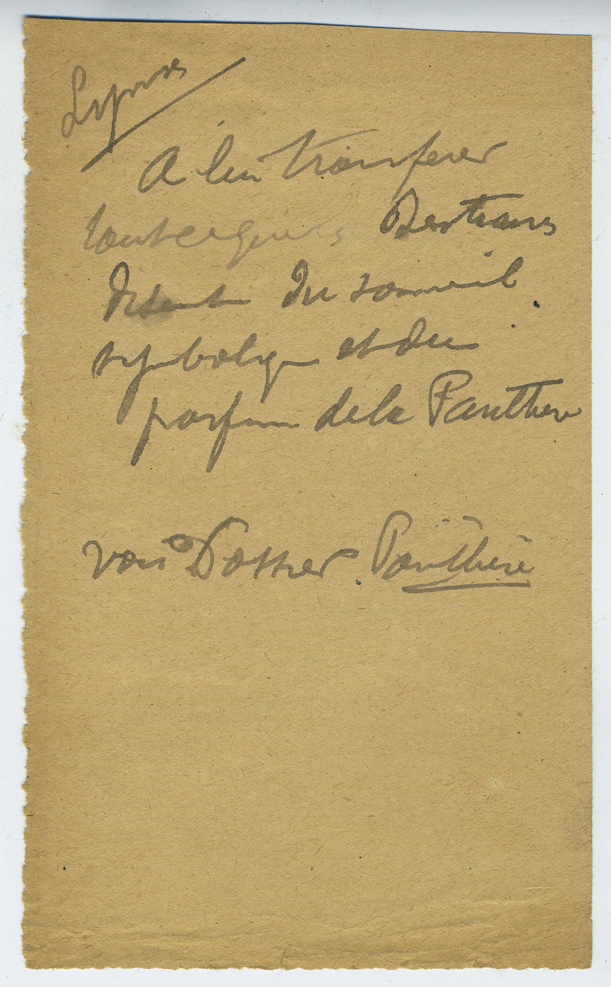 Lynx
A lui transferer
tout ce que les Bestiaires
disent du sommeil
symbolique et du
parfum de la Panthère
voir Dossier Panthère